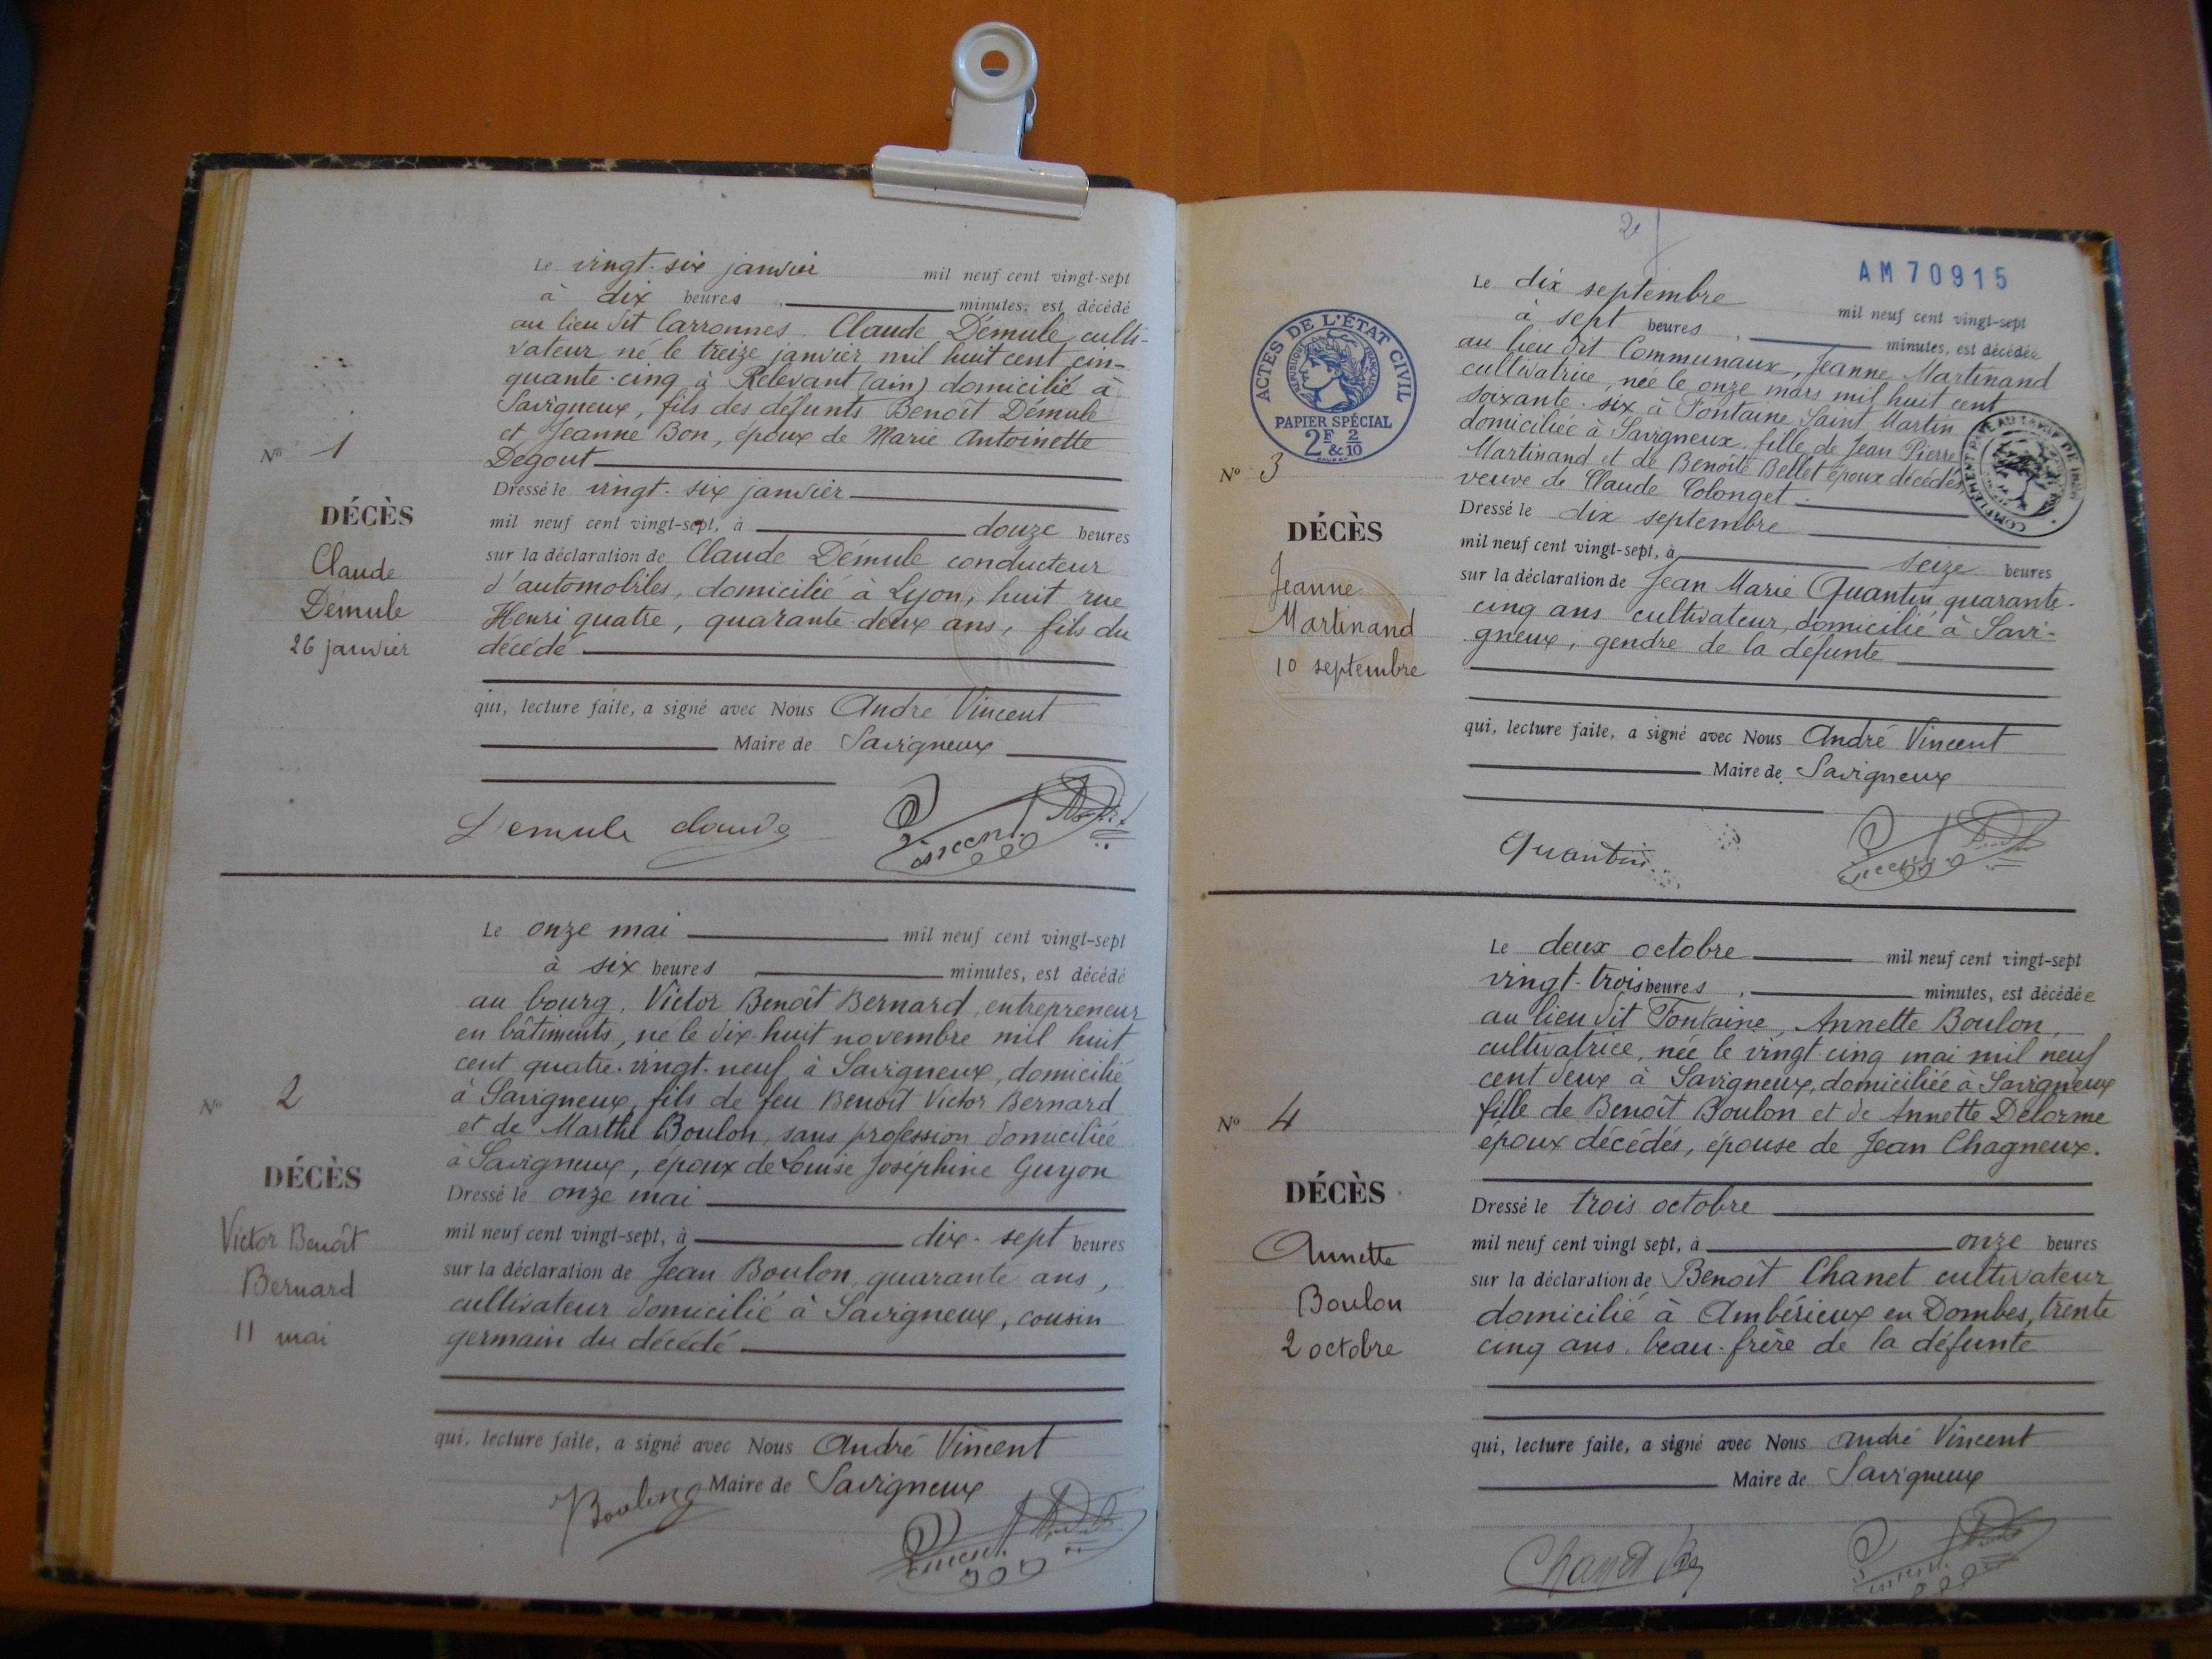 Le vingt-six janvier mil neuf cent vingt-sept
à dix heures minutes, est décédé
au lieu dit Carronnes. Claude Démule, culti-
vateur né le treize janvier mil huit cent cin-
quante-cinq à Relevant (ain) domicilié à
Savigneux, fils des défunts Benoît Démule
et Jeanne Bon, époux de Marie Antoinette
Degout
Dressé le vingt-six janvier
mil neuf cent vingt-sept, à douze heures
sur la déclaration de Claude Démule conducteur
d'automobiles, domicilié à Lyon, huit rue
Henri quatre, quarante-deux ans, fils du
décédé
qui, lecture faite, a signé avec Nous André Vincent
Maire de Savigneux
Demule claude
Vincent
No 1
DÉCÈS
Claude
Démule
26 janvier
Le onze mai mil neuf cent vingt-sept
à six heures minutes, est décédé
au bourg, Victor Benoît Bernard, entrepreneur
en bâtiments, né le dix-huit novembre mil huit
cent quatre-vingt-neuf à Savigneux, domicilié
à Savigneux, fils de feu Benoît Victor Bernard
et de Marthe Boulon, sans profession domiciliée
à Savigneux, époux de Louise Joséphine Guyon
Dressé le onze mai
mil neuf cent vingt-sept, à dix-sept heures
sur la déclaration de Jean Boulon, quarante ans,
cultivateur domicilié à Savigneux, cousin
germain du décédé
qui, lecture faite, a signé avec Nous André Vincent
Maire de Savigneux
Boulon
Vincent
No 2
DÉCÈS
Victor Benoît
Bernard
11 mai
2
AM70915
Le dix septembre mil neuf cent vingt-sept
à sept heures minutes, est décédée
au lieu dit Communaux, Jeanne Martinand
cultivatrice, née le onze mars mil huit cent
soixante-six à Fontaine Saint Martin
domiciliée à Savigneux, fille de Jean Pierre
Martinand et de Benoîte Bellet époux décédés
veuve de Claude Colonget
Dressé le dix septembre
mil neuf cent vingt-sept, à seize heures
sur la déclaration de Jean Marie Quantin, quarante-
cinq ans cultivateur, domicilié à Savi-
gneux, gendre de la défunte
qui, lecture faite, a signé avec Nous André Vincent
Maire de Savigneux
Quantin
Vincent
ACTES DE L'ÉTAT CIVIL
RÉPUBLIQUE FRANÇAISE
PAPIER SPÉCIAL
2F & 2/10
No 3
DÉCÈS
Jeanne
Martinand
10 septembre
Le deux octobre mil neuf cent vingt-sept
vingt-trois heures minutes, est décédée
au lieu dit Fontaine, Annette Boulon,
cultivatrice, née le vingt cinq mai mil neuf
cent deux à Savigneux, domiciliée à Savigneux
fille de Benoît Boulon et de Annette Delorme
époux décédés, épouse de Jean Chagneux.
Dressé le trois octobre
mil neuf cent vingt sept, à onze heures
sur la déclaration de Benoît Chanet cultivateur
domicilié à Ambérieux en Dombes, trente
cinq ans, beau-frère de la défunte
qui, lecture faite, a signé avec Nous André Vincent
Maire de Savigneux
Chanet
Vincent
No 4
DÉCÈS
Annette
Boulon
2 octobre